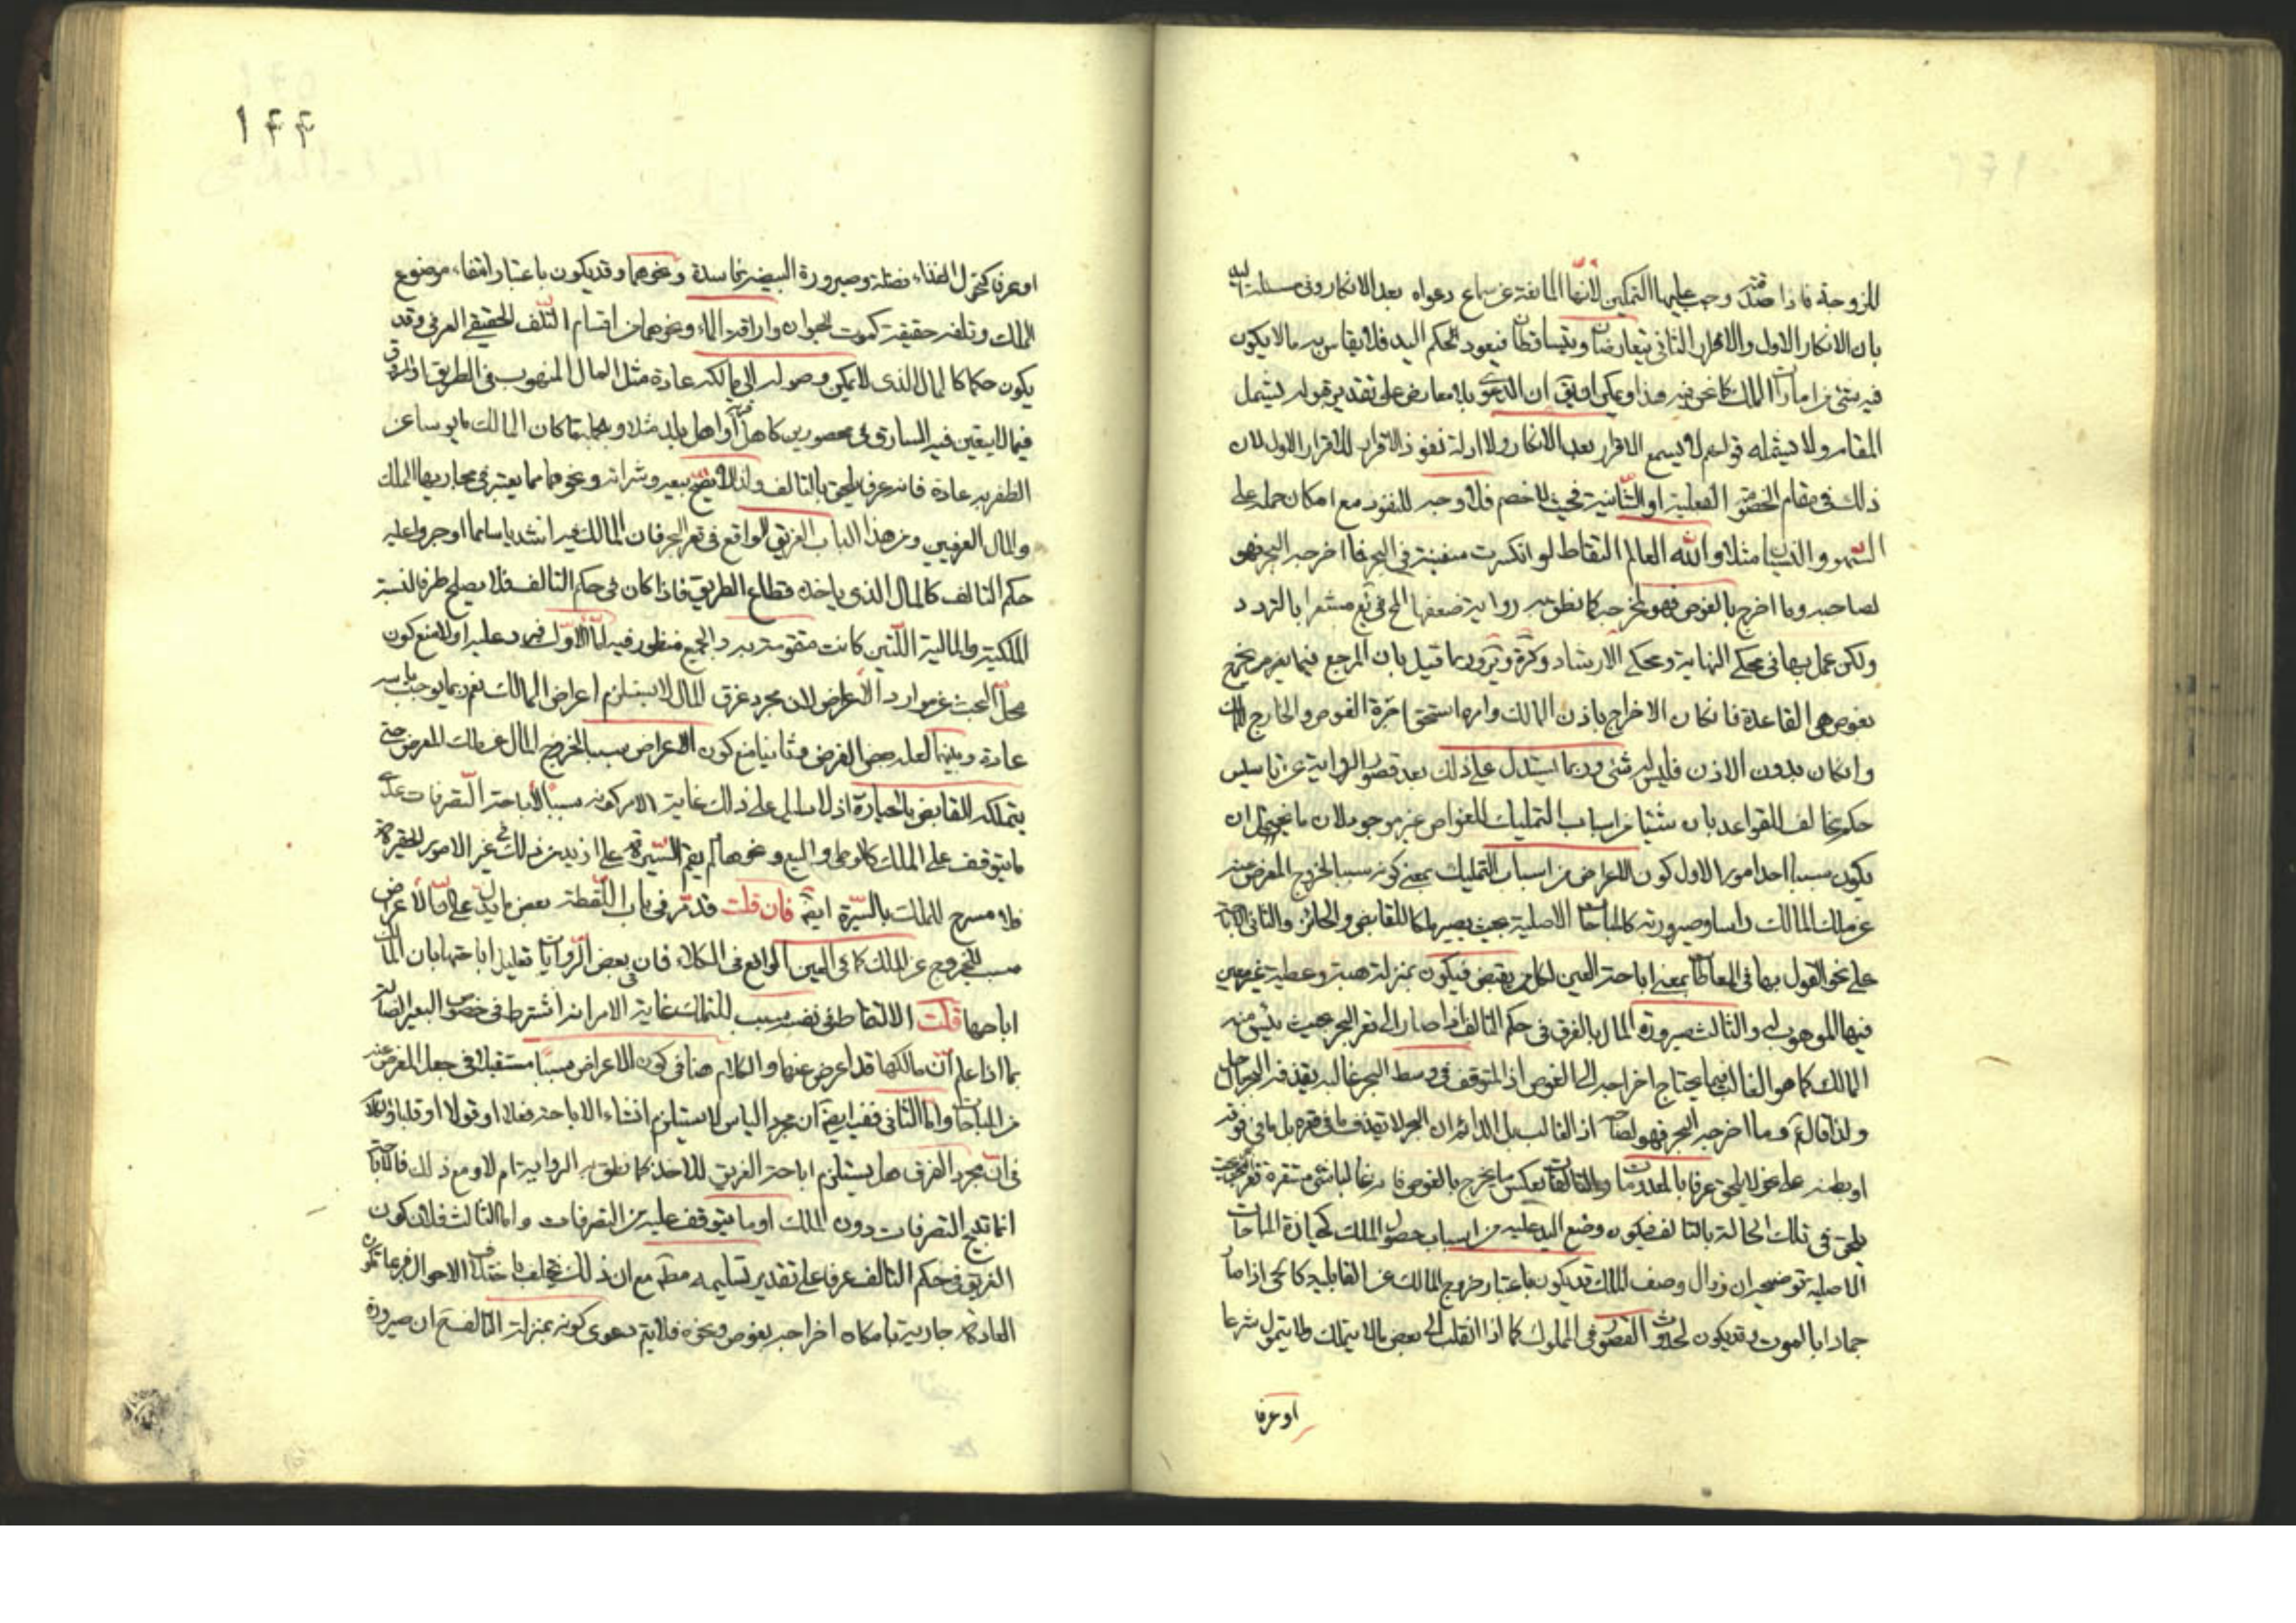 للزوجة فاذا صدقته وجب عليها التمكين لانها المانعة عن سماع دعواه بعد الانكار وفى مسئلة اليد
بان الانكار الاول والاقرار الثانى يتعارضان ويتساقطان فيعود الحكم اليد فلا يقاس به ما لا يكون
فيه شئ من امارات الملك كما نحن فيه هذا ويمكن ان الدعوى بلا معارض على تقدير قوله يشمل
المقام ولا يشمله قولهم لا يسمع الاقرار بعد الانكار ولا ادلة نفوذ الاقرار للاقرار الاول لان
ذلك فى مقام الخصومة الفعلية او الشأنية فحيث لا خصم فلا وجه للنفوذ مع امكان حمله على
السهو والنسيان مثلا والله العالم التقاط لو انكسرت سفينة فى البحر فما اخرجه البحر فهو
لصاحبه وما اخرج بالغوص فهو لمخرجه كما نطق به رواية ضعفها المح فى يع مشعرا بالتردد
ولكن عمل بها فى محكى النهاية ومحكى الارشاد وكرة و وربما قيل بان المرجع فيما يخرج
بغوص هى القاعدة فانكان الاخراج باذن المالك وامره استحق اجرة الغوص والخارج للمالك
وانكان بدون الاذن فليس له شئ وربما استدل على ذلك بعد قصور الرواية عن تاسيس
حكم مخالف للقواعد بان شيئا من اسباب التمليك للغواص غير موجود لان ما يتخيل ان
يكون سببا احد امور الاول كون الاعراض من اسباب التمليك بمعنى كونه سببا لخروج المعرض عنه
عن ملك المالك راسا وصيرورته كالمباحات الاصلية بحيث يصير ملكا للقابض والحائز والثانى الاباحة
على نحو القول بها فى المعاطاة بمعنى اباحة العين لكل من يقبض فيكون بمنزلة هبة وعطية غير معين
فيها الموهوب له والثالث صيرورة المال بالغرق فى حكم التالف اذا صار الى قعر البحر بحيث يئس منه
المالك كما هو الغالب فيما يحتاج اخراجه الى الغوص اذ المتوقف فى وسط البحر غالبه يقذفه البحر الى الساحل
ولذا قال ع وما اخرجه البحر فهو لصاحبه اذ الغالب بل الدائم ان البحر لا يقذف ما فى قعره بل ما فى فوقه
او بطنه على نحو لا يلحق عرفا بالمعدومات والتالفات بعكس ما يخرج بالغوص فانه غالبا شئ مستقرة
يلحق فى تلك الحالة بالتالف فيكون وضع اليد عليه من اسباب حصول الملك كحيازة المباحات
الاصلية توضيحه ان زوال وصف الملك قد يكون باعتبار خروج المالك عن القابلية كالحى اذا صار
جمادا بالموت وقد يكون لحدوث القصور فى المملوك كما اذا انقلب الى بعض مالا يتملك ولا يتمول شرعا
او عرفا
١٤٤
او عرفا كتحول الغذاء فضلة وصيرورة البيضة فاسدة ونحوهما وقد يكون باعتبار انتفاء موضوع
الملك وتلفه حقيقة كموت الحيوان واراقة الماء ونحوهما من اقسام التلف الحقيقى العرفى وقد
يكون حكما كالمال الذى لا يمكن وصوله الى مالكه عادة مثل المال المنهوب فى الطريق او المسروق
فيما لا يتعين فيه السارق فى محصورين كاهل دار او اهل بلد مثلا وبالجملة ما كان المالك مايوسا عن
الظفر به عادة فانه عرفا يلحق بالتالف ولذا لا يصح بيعه وشرائه ونحوهما مما يعتبر فى مجاريها الملك
والمال العرفيين ومن هذا الباب الغريق الواقع فى قعر البحر فان المالك فيه اشد ياسا مما اوجروا عليه
حكم التالف كالمال الذى ياخذه قطاع الطريق فاذا كان فى حكم التالف فلا يصلح طرفا لنسبة
الملكية والمالية اللتين كانت متقومة به والجميع منظور فيه اما الاول فيرد عليه اولا منع كون
محل البحث من موارد الاعراض لان مجرد غرق المال لا يستلزم اعراض المالك نعم ربما يوجب ياسه
عادة وبينهما لعله محض الفرض وثانيا منع كون الاعراض سببا لخروج المال عن ملك المعرض حتى
يتملكه القابض بالحيازة اذ لا دليل على ذلك غاية الامر كونه سببا لاباحة التصرفات عدى
ما يتوقف على الملك كالوطى والبيع ونحوهما لم يقم السيرة على ازيد من ذلك فى غير الامور الحقيرة
فلا مسرح للملك بالسيرة ايضا فان قلت قد مر فى باب اللقطة بعض ما يدل على ان الاعراض
سبب للخروج عن الملك كما فى العين الواقع فى الكلاء فان فى بعض الروايات تعليل اباحتها بان المالك
اباحها قلت الالتقاط فى نفسه سبب للتملك غاية الامر انه اشترط فى خصوص البعير الضالة
بما اذا علم ان مالكها قد اعرض عنها والكلام هنا فى كون الاعراض سببا مستقلا فى جعل المعرض عنه
من المباحات واما الثانى ففيه ايضا ان مجرد الياس لا يستلزم انشاء الاباحة فعلا او قولا او قلبا
فى ان مجرد الغرق هل يستلزم اباحة الغريق للاخذ كما نطق به الرواية ام لا ومع ذلك فالاباحة
انما تبيح التصرفات دون الملك او ما يتوقف عليه من التصرفات واما الثالث فلان كون
الغريق فى حكم التالف عرفا على تقدير تسليمه مط مع ان ذلك يختلف باختلاف الاحوال فربما تكون
العادة جارية بامكان اخراجه بغوص ونحوه فلا يتم دعوى كونه بمنزلة التالف مع ان صيرورة